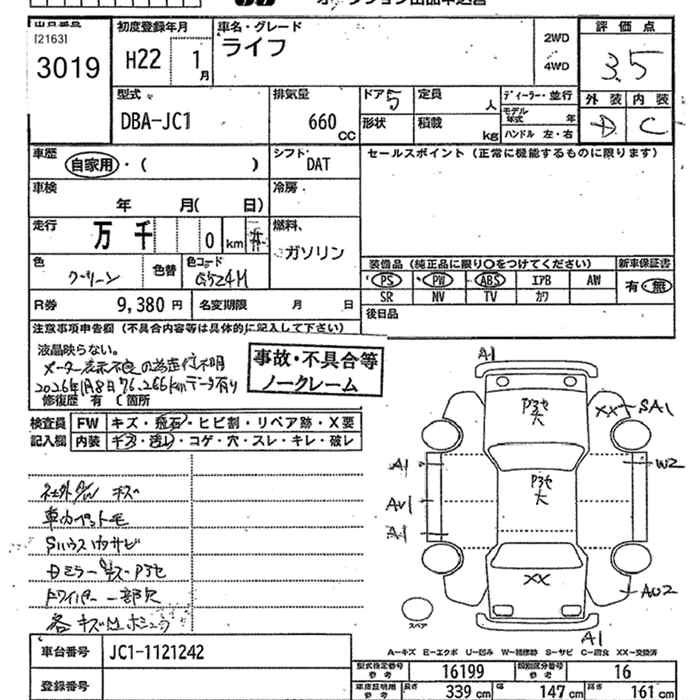 出品番号
[2163]
3019
初度登録年月
H22 1月
車名・グレード
ライフ
2WD
4WD
評価点
3.5
外装 内装
D C
型式
DBA-JC1
排気量
660 CC
ドア 5
形状
定員 人
積載 kg
ディーラー・並行
モデル年式 年
ハンドル 左・右
車歴
自家用・( )
シフト
DAT
セールスポイント(正常に機能するものに限ります)
車検
年 月( 日)
冷房
走行
万 千 0 km
燃料
ガソリン
色
グリーン
色替
色コード
G524M
装備品(純正品に限り○をつけてください)
新車保証書
PS PW ABS エアB AW
SR NV TV カワ
有・無
R券
9,380円
名変期限 月 日
後日品
注意事項申告欄(不具合内容等は具体的に記入して下さい)
液晶映らない。
メーター表示不良の為走行不明
2026年1月8日76,266kmデータ有り
修復歴 有 ( 箇所
事故・不具合等
ノークレーム
検査員記入欄
FW キズ・飛石・ヒビ割・リペア跡・X要
内装 キズ・汚レ・コゲ・穴・スレ・キレ・破レ
車カーペット毛
ドワイパー一部欠
A1
P3セ
大
XX
SA1
A1
P3セ
大
W2
A1
XX
AU2
スペア
A1
A－キズ E－エクボ U－凹み W－補修跡 S－サビ C－腐食 XX－交換済
車台番号
JC1-1121242
登録番号
型式指定番号
参考
16199
類別区分番号
参考
16
車庫証明用
参考
長さ 339 cm
幅 147 cm
高さ 161 cm